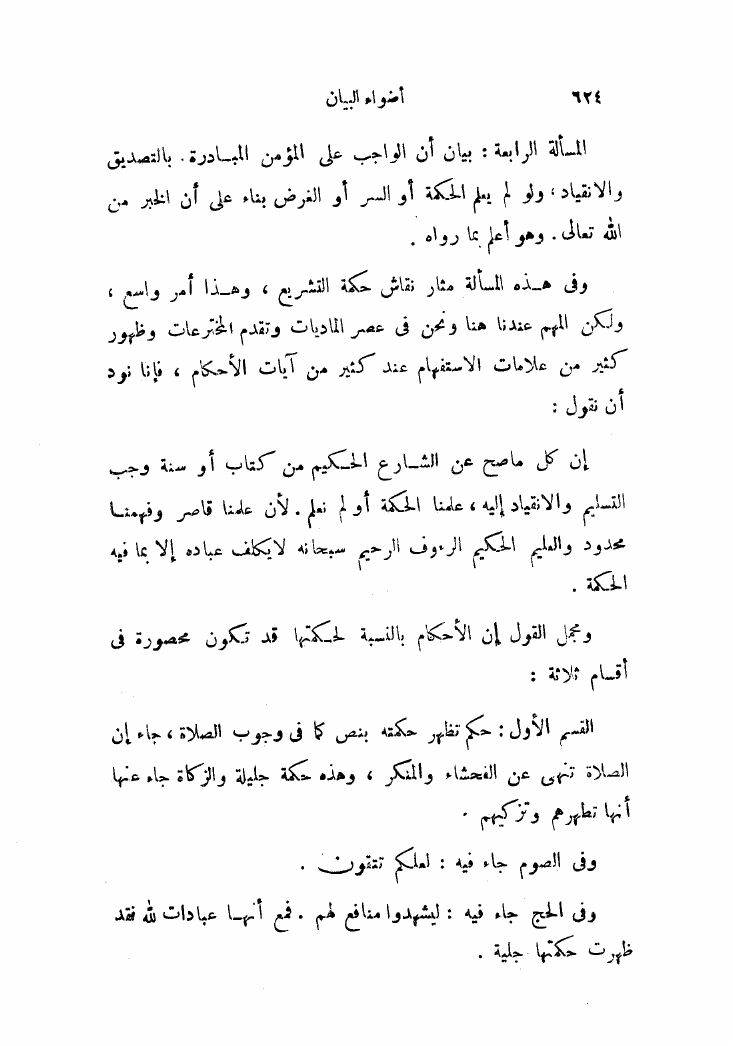 ٦٢٤ أضواء البيان
المسألة الرابعة : بيان أن الواجب على المؤمن المبادرة . بالتصديق
والانقياد ، ولو لم يعلم الحكمة أو السر أو الغرض بناء على أن الخبر من
الله تعالى . وهو أعلم بما رواه .
وفى هذه المسألة مثار نقاش حكمة التشريع ، وهذا أمر واسع ،
ولكن المهم عندنا هنا ونحن فى عصر الماديات وتقدم المخترعات وظهور
كثير من علامات الاستفهام عند كثير من آيات الأحكام ، فإنا نود
أن نقول :
إن كل ماصح عن الشارع الحكيم من كتاب أو سنة وجب
التسليم والانقياد إليه ، علمنا الحكمة أو لم نعلم . لأن علمنا قاصر وفهمنا
محدود والعليم الحكيم الرءوف الرحيم سبحانه لايكلف عباده إلا بما فيه
الحكمة .
ومجمل القول إن الأحكام بالنسبة لحكمتها قد تكون محصورة فى
أقسام ثلاثة :
القسم الأول : حكم تظهر حكمته بنص كما فى وجوب الصلاة ، جاء إن
الصلاة تنهى عن الفحشاء والمنكر ، وهذه حكمة جليلة والزكاة جاء عنها
أنها تطهرهم وتزكيهم .
وفى الصوم جاء فيه : لعلكم تتقون .
وفى الحج جاء فيه : ليشهدوا منافع لهم . فمع أنها عبادات لله فقد
ظهرت حكمتها جلية .